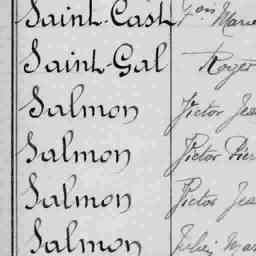 Saint-Cast fois Marie
Saint-Gal Roger
Salmon Victor Jea
Salmon Victor Pier
Salmon Victor Jea
Salmon Julien Mar